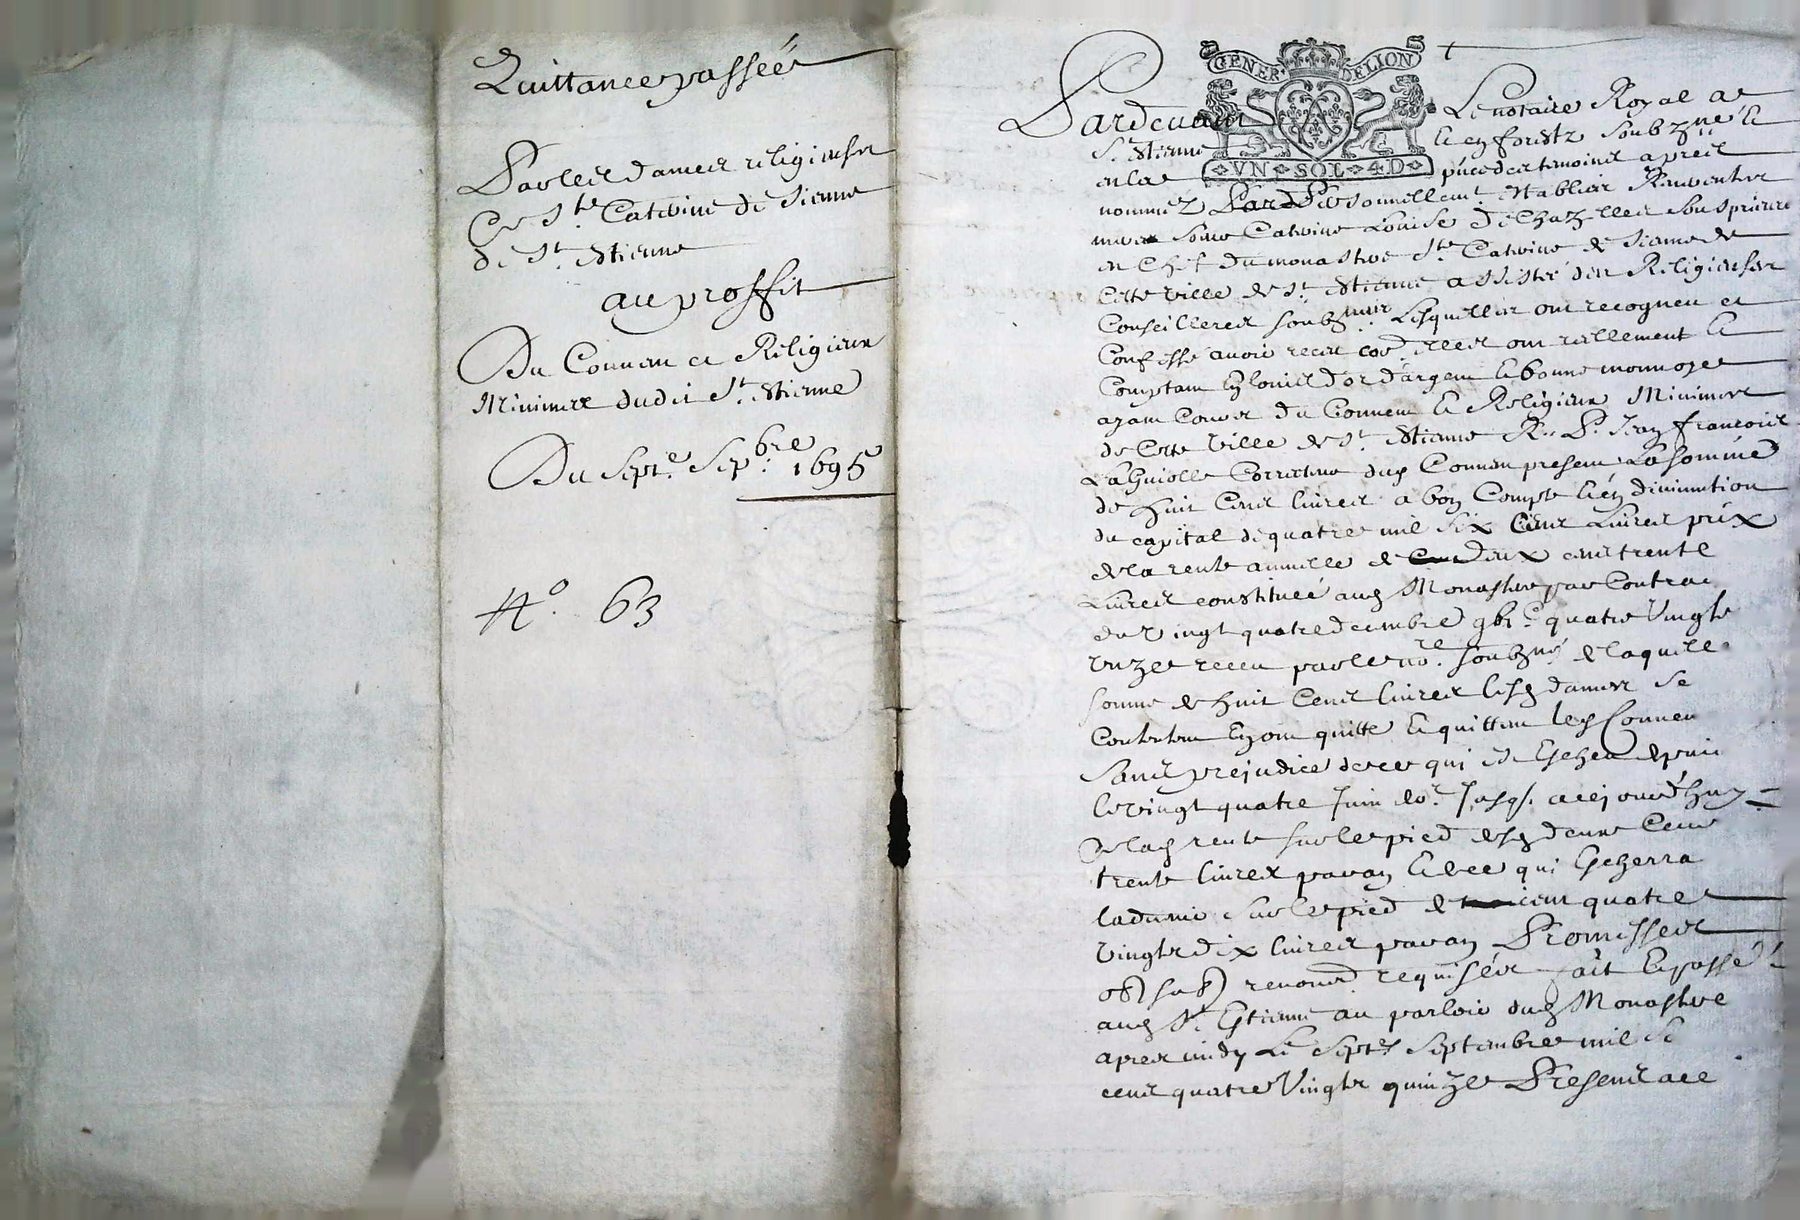 Quittance passée
Par les dames religieuses
De Ste Caterine de Sienne
de St. Etienne
au proffit
Du Couvent et Religieux
Minimes dudit St. Etienne
Du Septe. Sepbre. 1695
No. 63
GENER. DELION
VN SOL 4D
Pardevant Le notaire Royal de
St. Etienne en forestz soubzne. &
en la presence des temoins apres
nommez Personnellemt. establies Reverendes
meres Soeur Caterine Louise de Chaz elles Sousprieure
en Chef du monastere Ste Caterine de Sienne de
Cette ville de St. Etienne assisté des Religieuses
Conseilleres soubznées Lesquelles ont recogneu et
Confessé avoir receu elles ont reellement &
Comptant en louis d'or d'argent & bonne monnoye
ayant Cours du Couvent & Religieux Minimes
de Cette ville de St. Etienne R. P. Jean francois
La Guiolle Correcteur dud Couvent present La somme
de huit Cens livres a bon Compte & en diminution
du capital de quatre mil six Cens Livres prix
de la rente annuelle de deux cens trente
Livres constituée aud Monastere par Contrat
du vingt quatre decembre gbic. quatre vingts
unze receu par le nore. soubzné de laquelle
somme de huit Cens livres lesd dames se
Contentent en ont quitté & quittent led Couvent
sans prejudice de ce qui est Escheu depuis
le vingt quatre Juin der. Jusq. a cejourd'huy
de lad rente sur le pied desd deux Cens
trente livres par an & de ce qui Escherra
a ladvenir sur le pied de cent quatre
vingts dix livres par an Promisses
renond requises fait & passé
aud St. Etienne au parloir dud Monastere
apres midy Le Septe. Septembre mil six
cens quatre vingts quinze Presens a ce